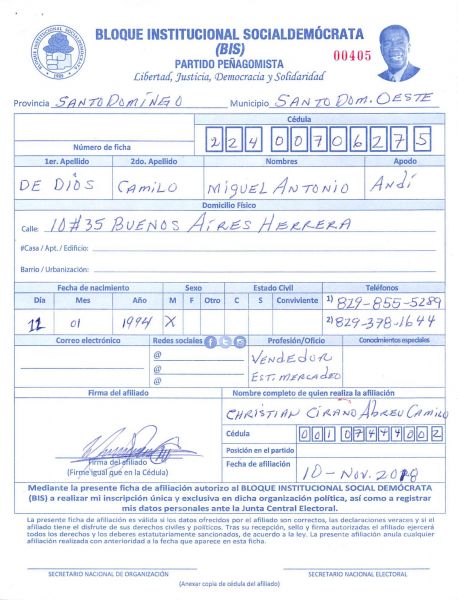 BLOQUE INSTITUCIONAL SOCIALDEMÓCRATA
(BIS)
PARTIDO PEÑAGOMISTA
00405
Libertad, Justicia, Democracia y Solidaridad
Provincia SANTO DOMINGO Municipio SANTO DOM. OESTE
Cédula
Número de ficha 22400706275
1er. Apellido 2do. Apellido Nombres Apodo
DE DIÓS CAMILO MIGUEL ANTONIO ANDÍ
Domicilio Físico
Calle: 10#35 BUENOS AIRES HERRERA
#Casa / Apt. / Edificio:
Barrio / Urbanización:
Fecha de nacimiento Sexo Estado Civil Teléfonos
Día Mes Año M F Otro C S Conviviente 1) 829-855-5289
11 01 1994 X 2) 829-378-1644
Correo electrónico Redes sociales Profesión/Oficio Conocimientos especiales
@ VENDEDOR
@ EST. MERCADEO
@
Firma del afiliado Nombre completo de quien realiza la afiliación
CHRISTIAN CIRANO ABREU CAMILO
Cédula 00107444002
Posición en el partido
Firma del afiliado
(Firme igual que en la Cédula)
Fecha de afiliación 10-NOV. 2018
Mediante la presente ficha de afiliación autorizo al BLOQUE INSTITUCIONAL SOCIAL DEMÓCRATA
(BIS) a realizar mi inscripción única y exclusiva en dicha organización política, así como a registrar
mis datos personales ante la Junta Central Electoral.
La presente ficha de afiliación es válida si los datos ofrecidos por el afiliado son correctos, las declaraciones veraces y si el
afiliado tiene el disfrute de sus derechos civiles y políticos. Tras su recepción, sello y firma autorizadas el afiliado ejercerá
todos los derechos y los deberes estatutariamente sancionados, de acuerdo a la ley. La presente afiliación anula cualquier
afiliación realizada con anterioridad a la fecha que aparece en esta ficha.
SECRETARIO NACIONAL DE ORGANIZACIÓN SECRETARIO NACIONAL ELECTORAL
(Anexar copia de cédula del afiliado)